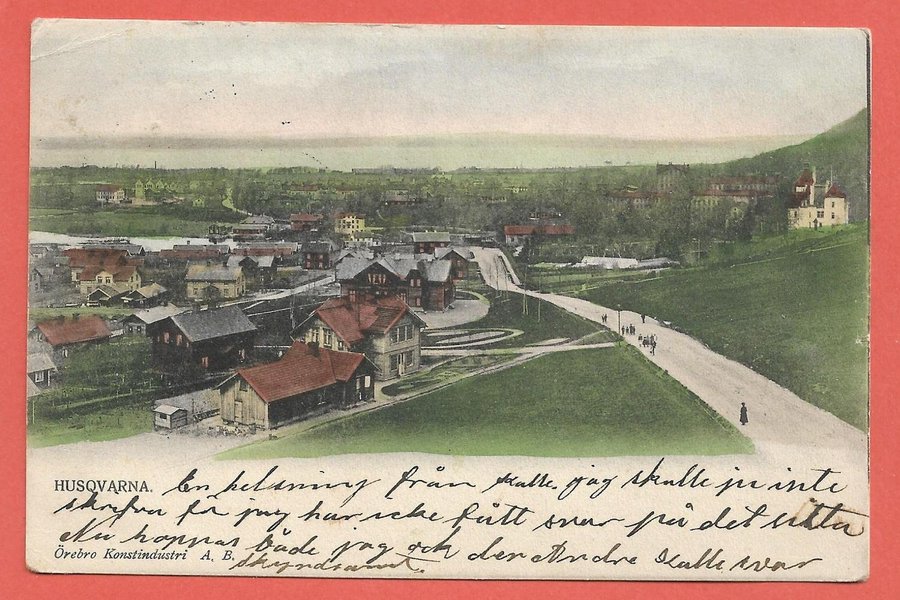 HUSQVARNA. En helsning från Kalle. jag skulle ju inte
skrifva för jag har icke fått svar på det sista
Nu hoppas både jag och den Andre Kalle svar
Örebro Konstindustri A. B. skyndsamt.